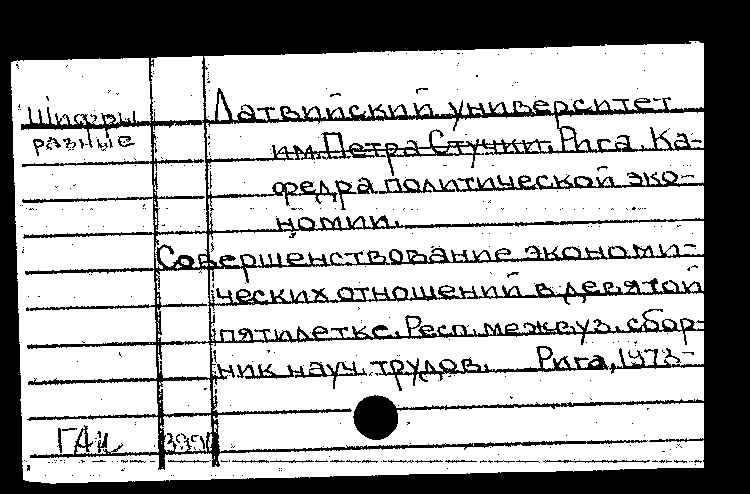 Шифры
разные
Латвийский университет
им. Петра Стучки. Рига. Ка-
федра политической эко-
номии.
Совершенствование экономи-
ческих отношений в девятой
пятилетке. Респ. межвуз. сбор-
ник науч. трудов. Рига, 1973-